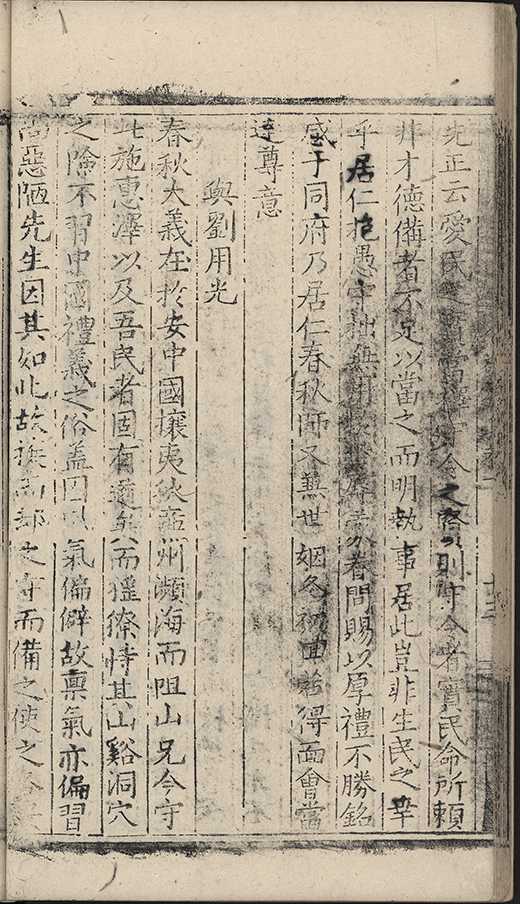 先正云愛民之守令之際則守令者實民命所賴
非才德備者不足以當之而明執事居此豈非生民之幸
乎居仁抱愚守拙無用眷問賜以厚禮不勝銘
感于同府乃居仁春秋師又無世姻若得面會當
達尊意
與劉用光
春秋大義在於安中國攘夷狄州瀕海而阻山兄今守
此施惠澤以及吾民者固有道矣而猺獠恃其山谿洞穴
之險不習中國禮義之俗蓋因氣偏僻故稟氣亦偏習
尚惡陋先生因其如此故之守而備之使之